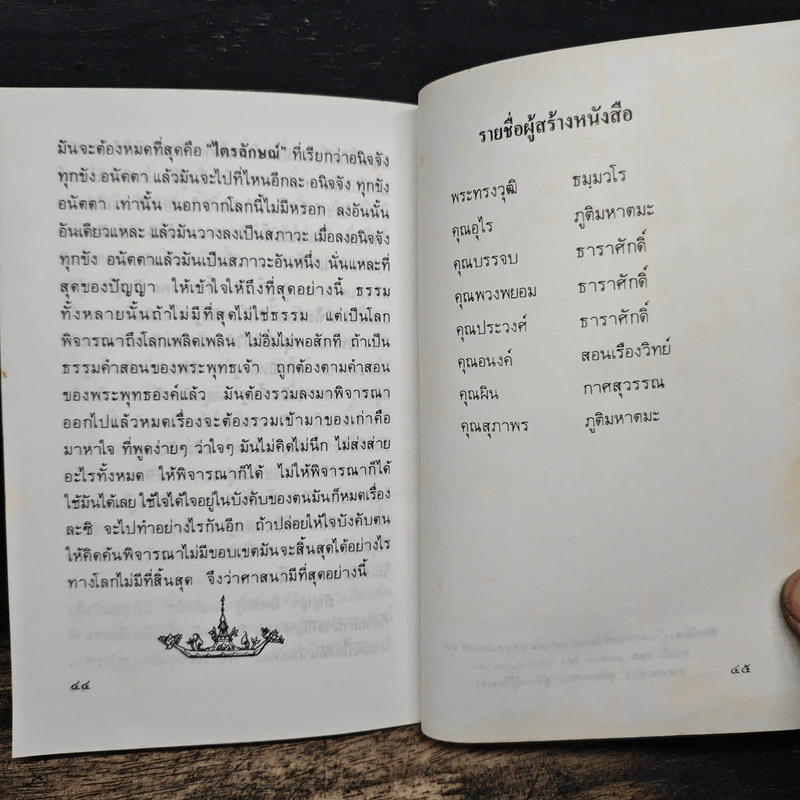 มันจะต้องหมดที่สุดคือ “ไตรลักษณ์” ที่เรียกว่าอนิจจัง
ทุกขัง อนัตตา แล้วมันจะไปที่ไหนอีกละ อนิจจัง ทุกขัง
อนัตตา เท่านั้น นอกจากโลกนี้ไม่มีหรอก ลงอันนั้น
อันเดียวแหละ แล้วมันวางลงเป็นสภาวะ เมื่อลงอนิจจัง
ทุกขัง อนัตตาแล้วมันเป็นสภาวะอันหนึ่ง นั่นแหละที่
สุดของปัญญา ให้เข้าใจให้ถึงที่สุดอย่างนี้ ธรรม
ทั้งหลายนั้นถ้าไม่มีที่สุดไม่ใช่ธรรม แต่เป็นโลก
พิจารณาถึงโลกเพลิดเพลิน ไม่อิ่มไม่พอสักที ถ้าเป็น
ธรรมคำสอนของพระพุทธเจ้า ถูกต้องตามคำสอน
ของพระพุทธองค์แล้ว มันต้องรวมลงมาพิจารณา
ออกไปแล้วหมดเรื่องจะต้องรวมเข้ามาของเก่าคือ
มาหาใจ ที่พูดง่ายๆ ว่าใจๆ มันไม่คิดไม่นึก ไม่ส่งส่าย
อะไรทั้งหมด ให้พิจารณาก็ได้ ไม่ให้พิจารณาก็ได้
ใช้มันได้เลย ใช้ใจได้ใจอยู่ในบังคับของตนมันก็หมดเรื่อง
ละซิ จะไปทำอย่างไรกันอีก ถ้าปล่อยให้ใจบังคับตน
ให้คิดค้นพิจารณาไม่มีขอบเขตมันจะสิ้นสุดได้อย่างไร
ทางโลกไม่มีที่สิ้นสุด จึงว่าศาสนามีที่สุดอย่างนี้
๔๔
รายชื่อผู้สร้างหนังสือ
พระทรงวุฒิ ธมฺมวโร
คุณอุไร ภูติมหาตมะ
คุณบรรจบ ธาราศักดิ์
คุณพวงพยอม ธาราศักดิ์
คุณประวงศ์ ธาราศักดิ์
คุณอนงค์ สอนเรืองวิทย์
คุณผิน กาศสุวรรณ
คุณสุภาพร ภูติมหาตมะ
๔๕